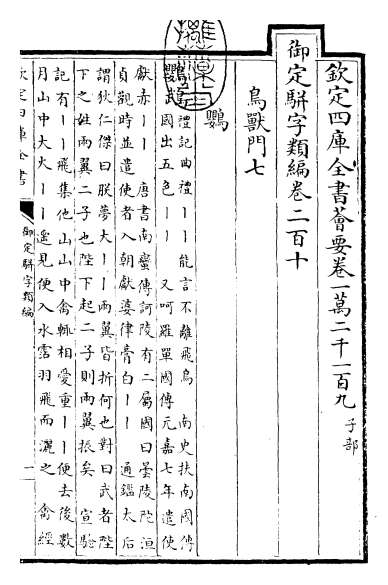 欽定四庫全書薈要卷一萬二千一百九 子部
御定駢字類編卷二百十
鳥獸門七
鸚
鸚鵡 禮記曲禮丨丨能言不離飛鳥 南史扶南國傳
丨丨國出五色丨丨 又呵羅單國傳元嘉七年遣使
獻赤丨丨 唐書南蠻傳訶陵有二屬國曰曇陵陀洹
貞觀時並遣使者入朝獻婆律膏白丨丨 通鑑太后
謂狄仁傑曰朕夢大丨丨兩翼皆折何也對曰武者陛
下之姓兩翼二子也陛下起二子則兩翼振矣 宣驗
記有丨丨飛集他山山中禽輒相愛重丨丨便去後數
月山中大火丨丨遙見便入水霑羽飛而灑之 禽經
欽定四庫全書
御定駢字類編
一